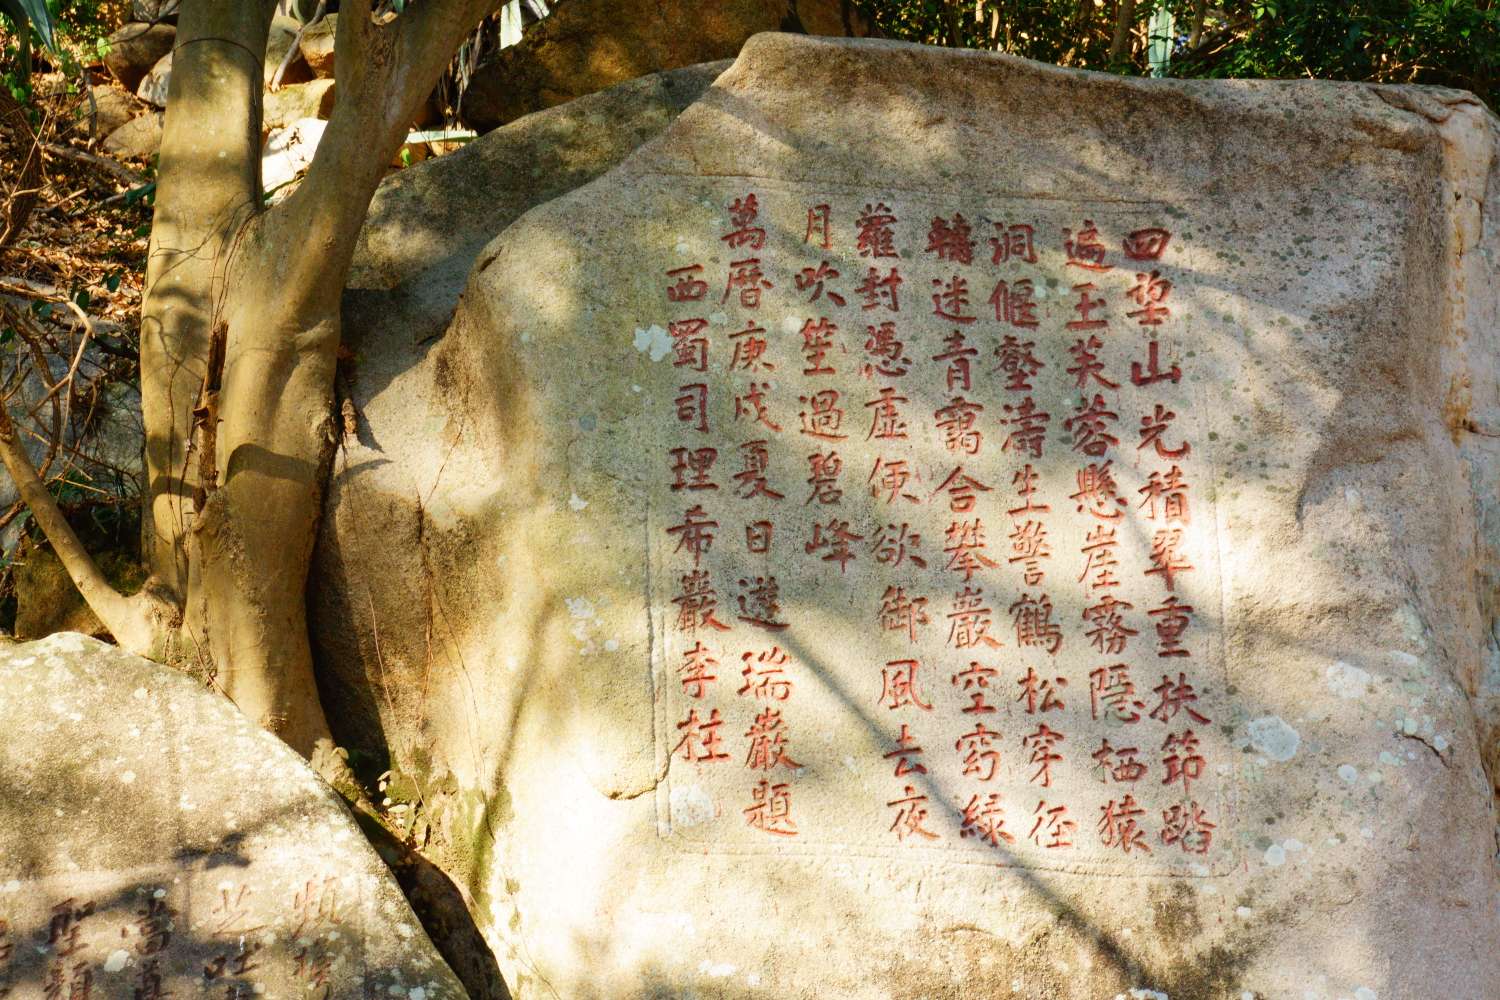 四望山光積翠重扶筇踏
遍玉芙蓉懸崖霧隱栖猿
洞偃壑濤生警鶴松穿徑
轉迷青靄合攀巖空窈綠
蘿封憑虛便欲御風去夜
月吹笙過碧峰
萬曆庚戌夏日遊瑞巖題
西蜀司理希巖李柱
芝吐
當尊
聖題